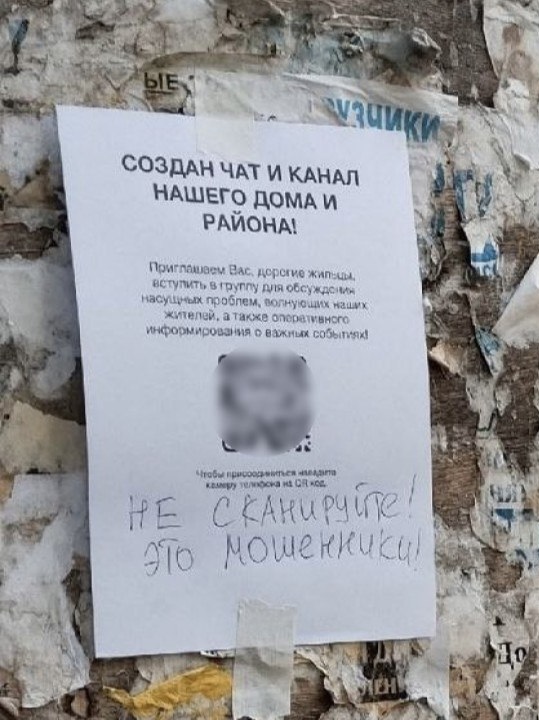 ЫЕ
УЗЧИКИ
СОЗДАН ЧАТ И КАНАЛ
НАШЕГО ДОМА И
РАЙОНА!
Приглашаем Вас, дорогие жильцы,
вступить в группу для обсуждения
насущных проблем, волнующих наших
жителей, а также оперативного
информирования о важных событиях!
Чтобы присоединиться наведите
камеру телефона на QR код.
НЕ СКАНИРУЙТЕ!
ЭТО МОШЕННИКИ!